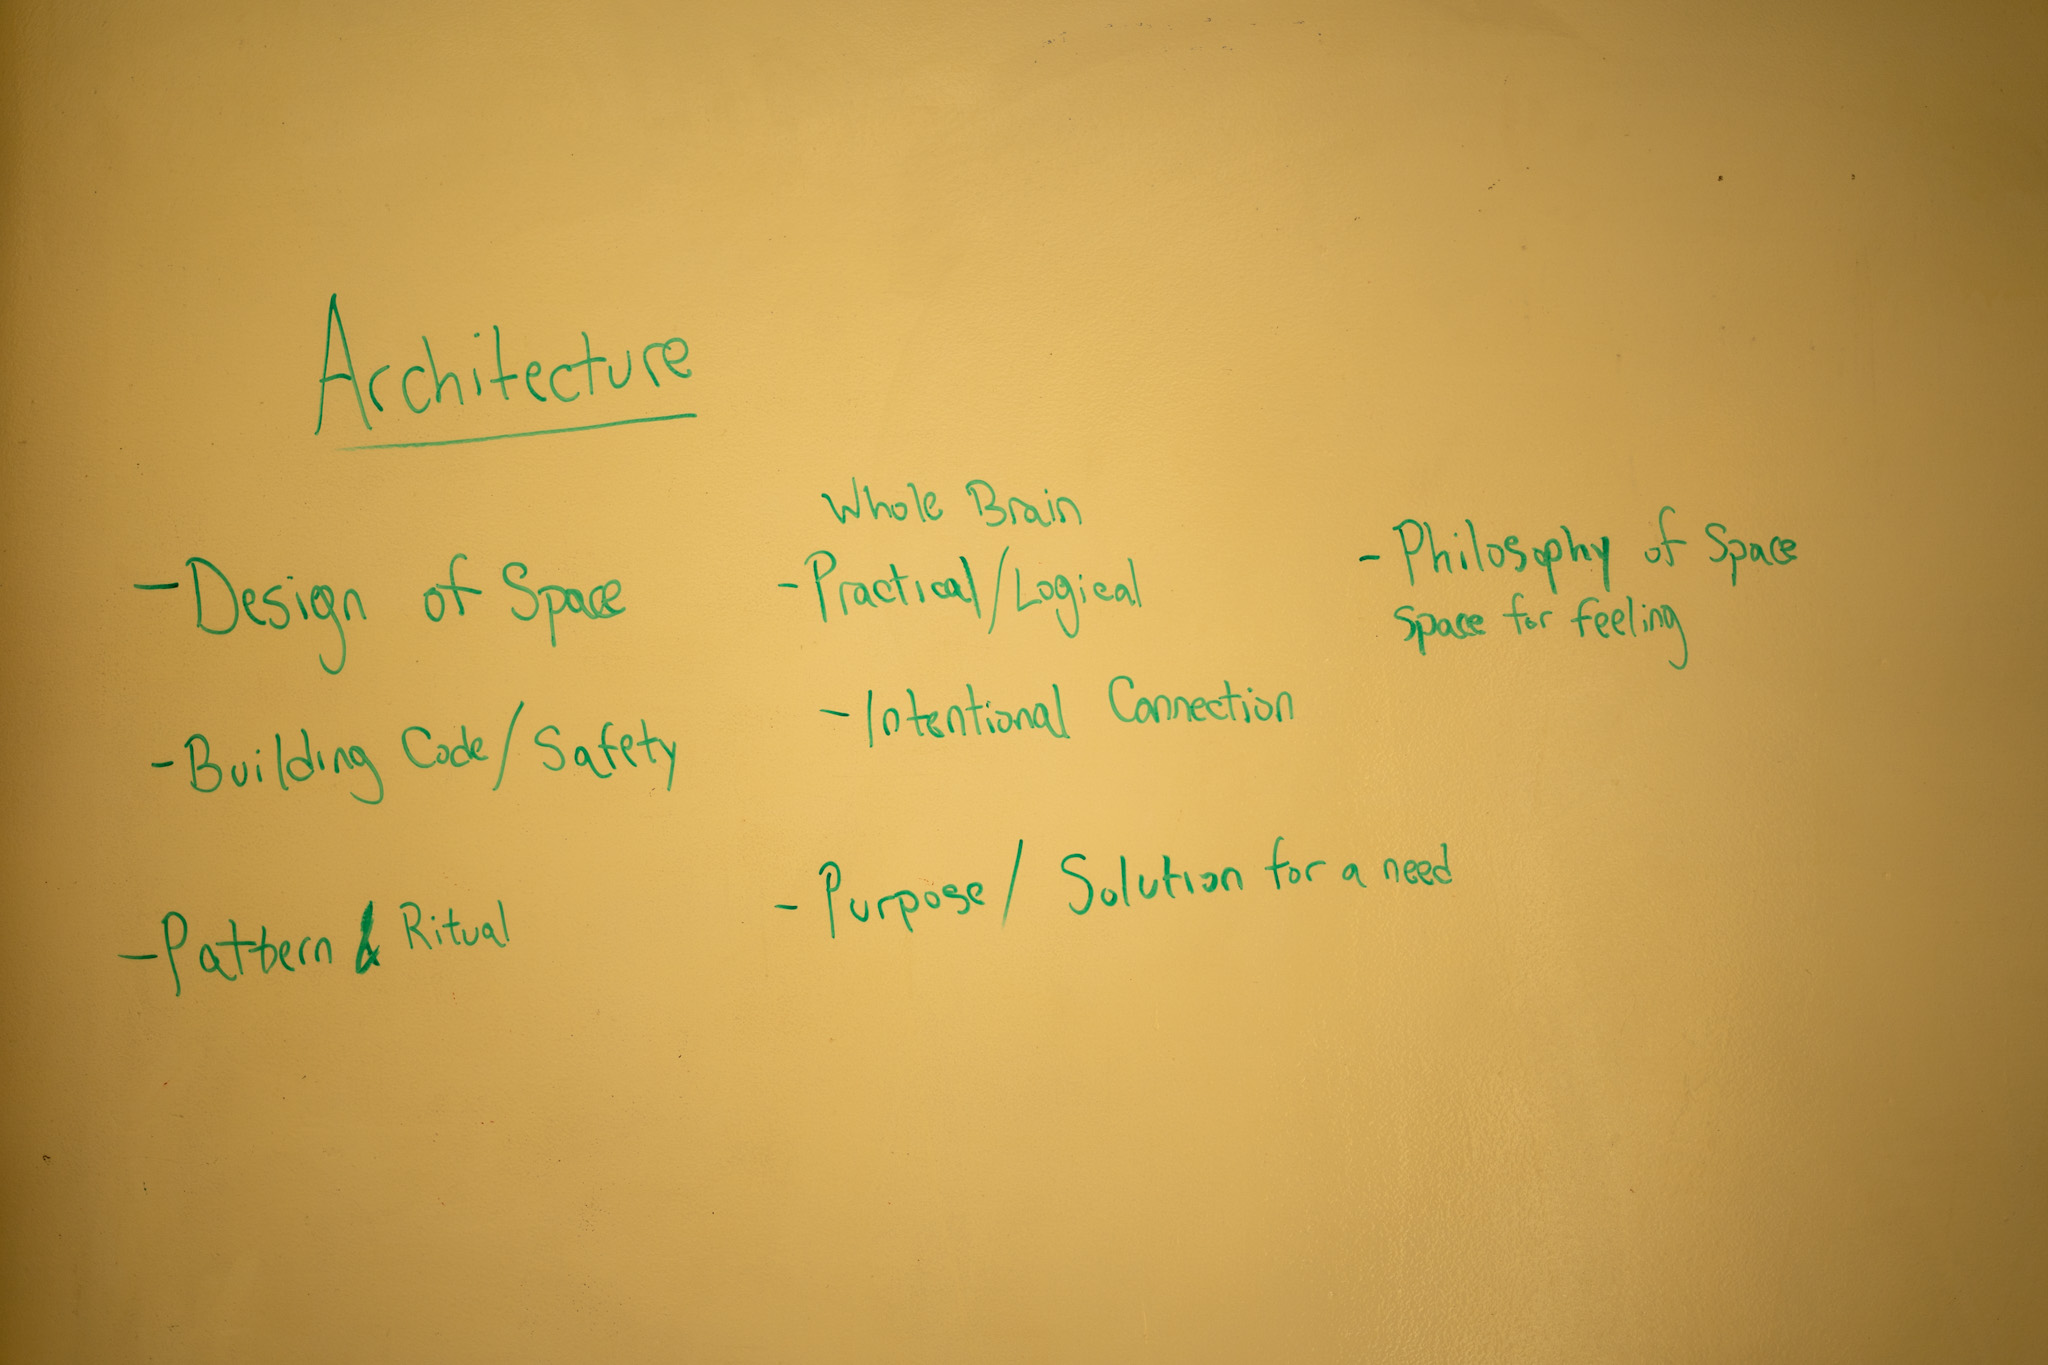 Architecture
- Design of Space
- Building Code / Safety
- Pattern & Ritual
Whole Brain
- Practical / Logical
- Intentional Connection
- Purpose / Solution for a need
- Philosophy of Space
Space for feeling